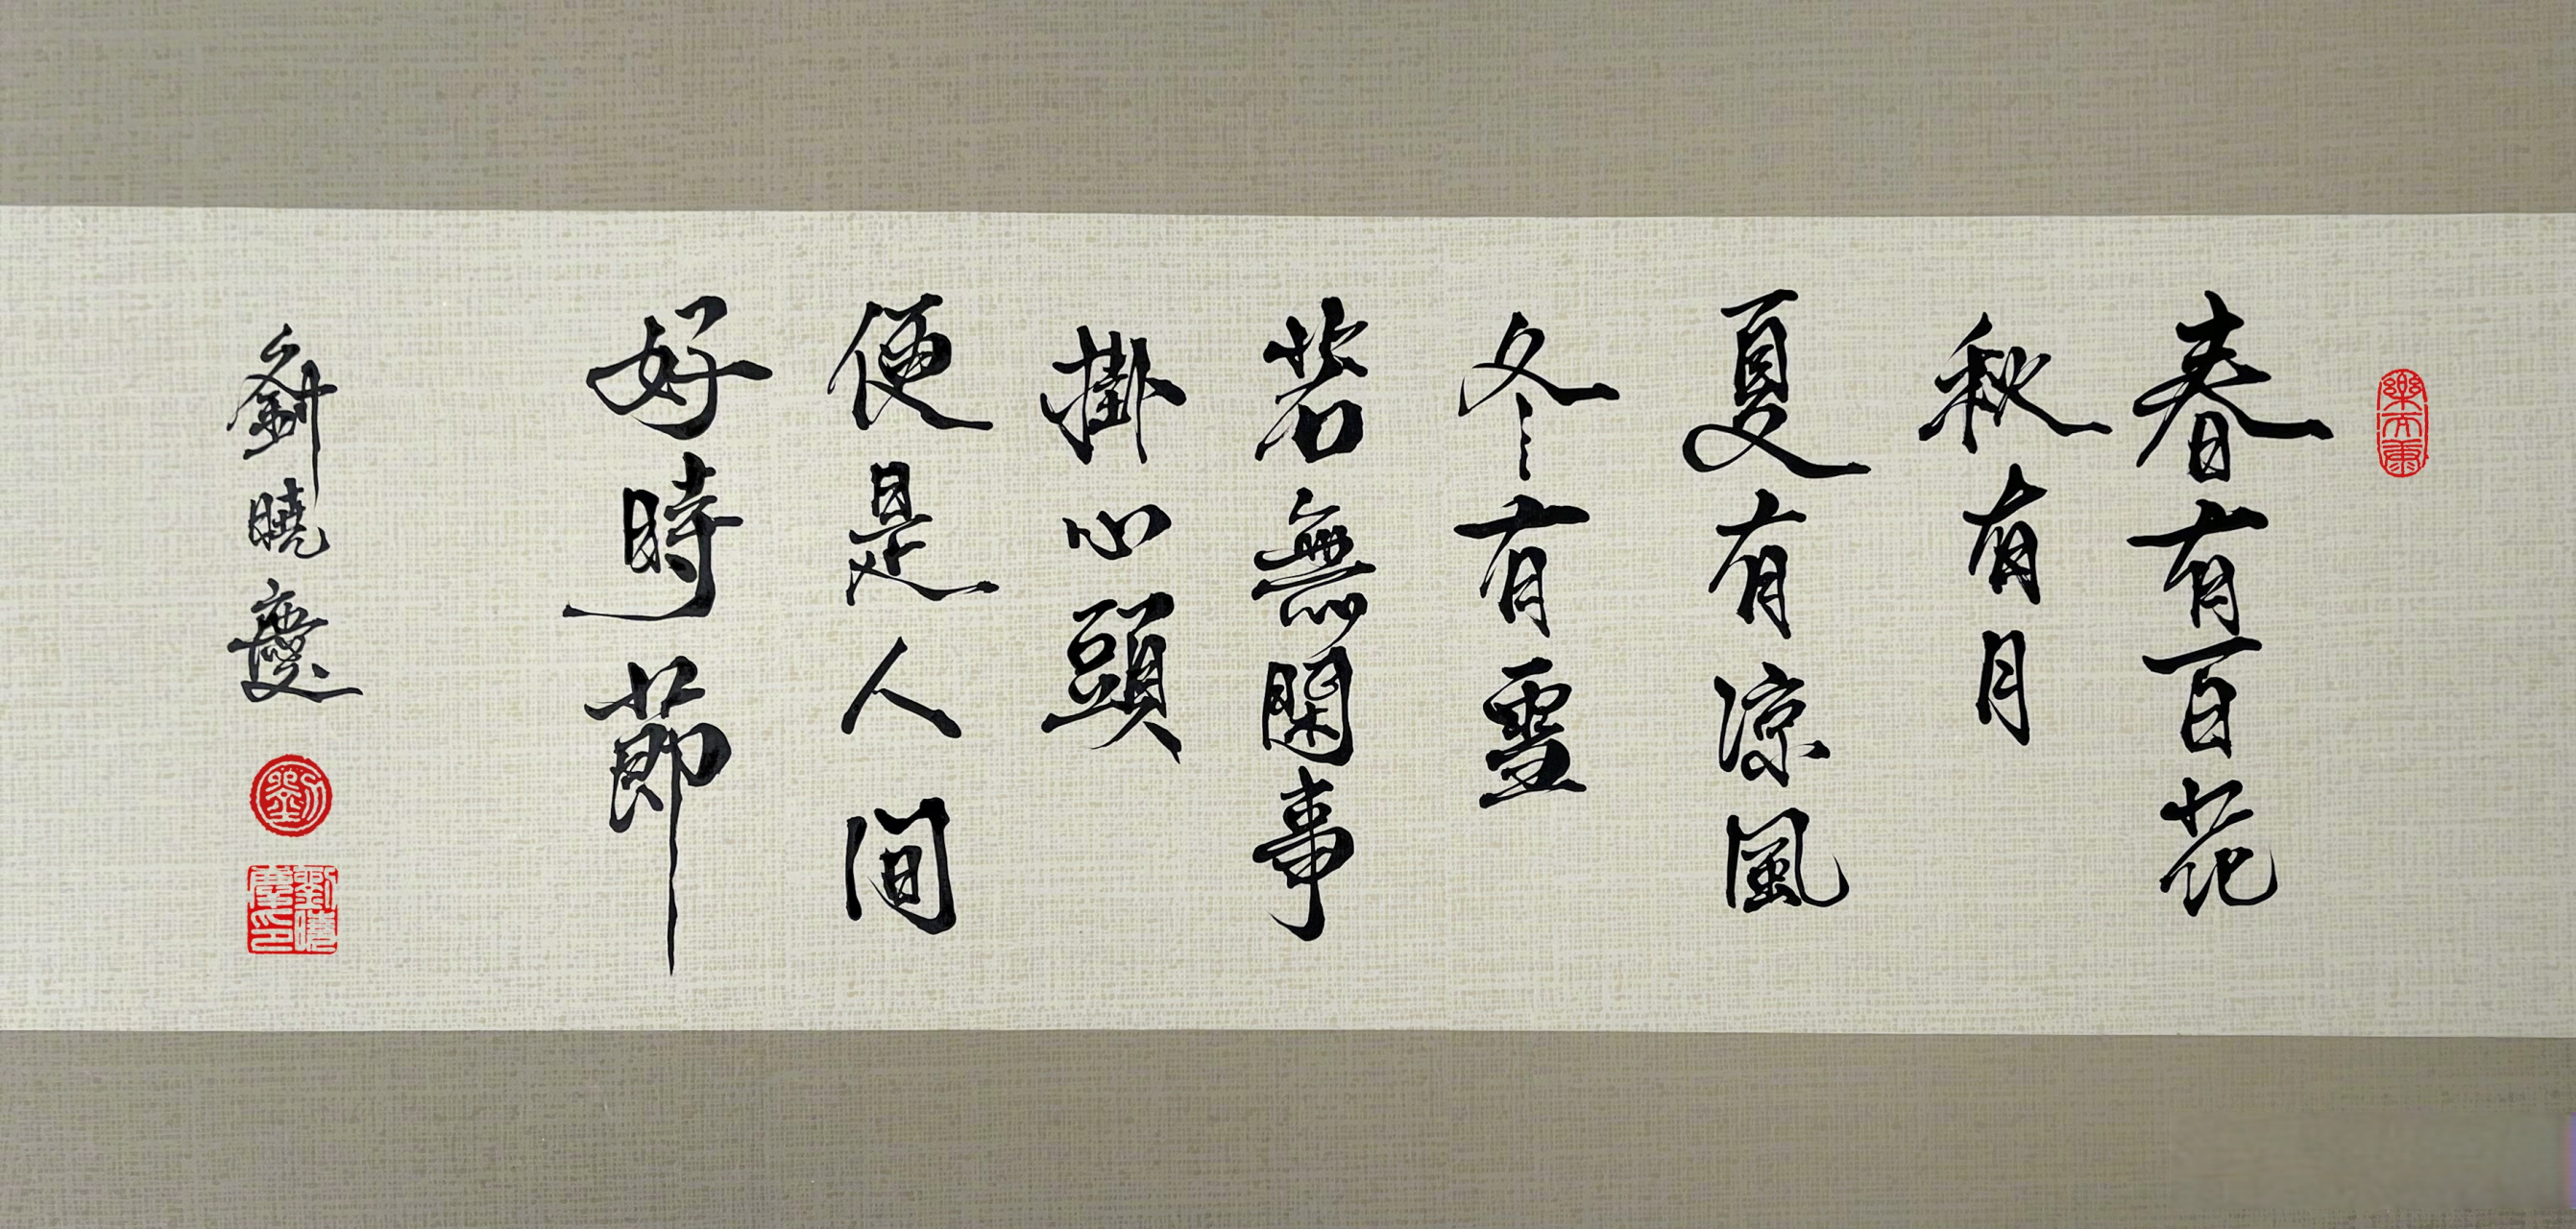 春有百花
秋有月
夏有涼風
冬有雪
若無閑事
掛心頭
便是人間
好時節
劉曉慶
劉
劉曉慶印